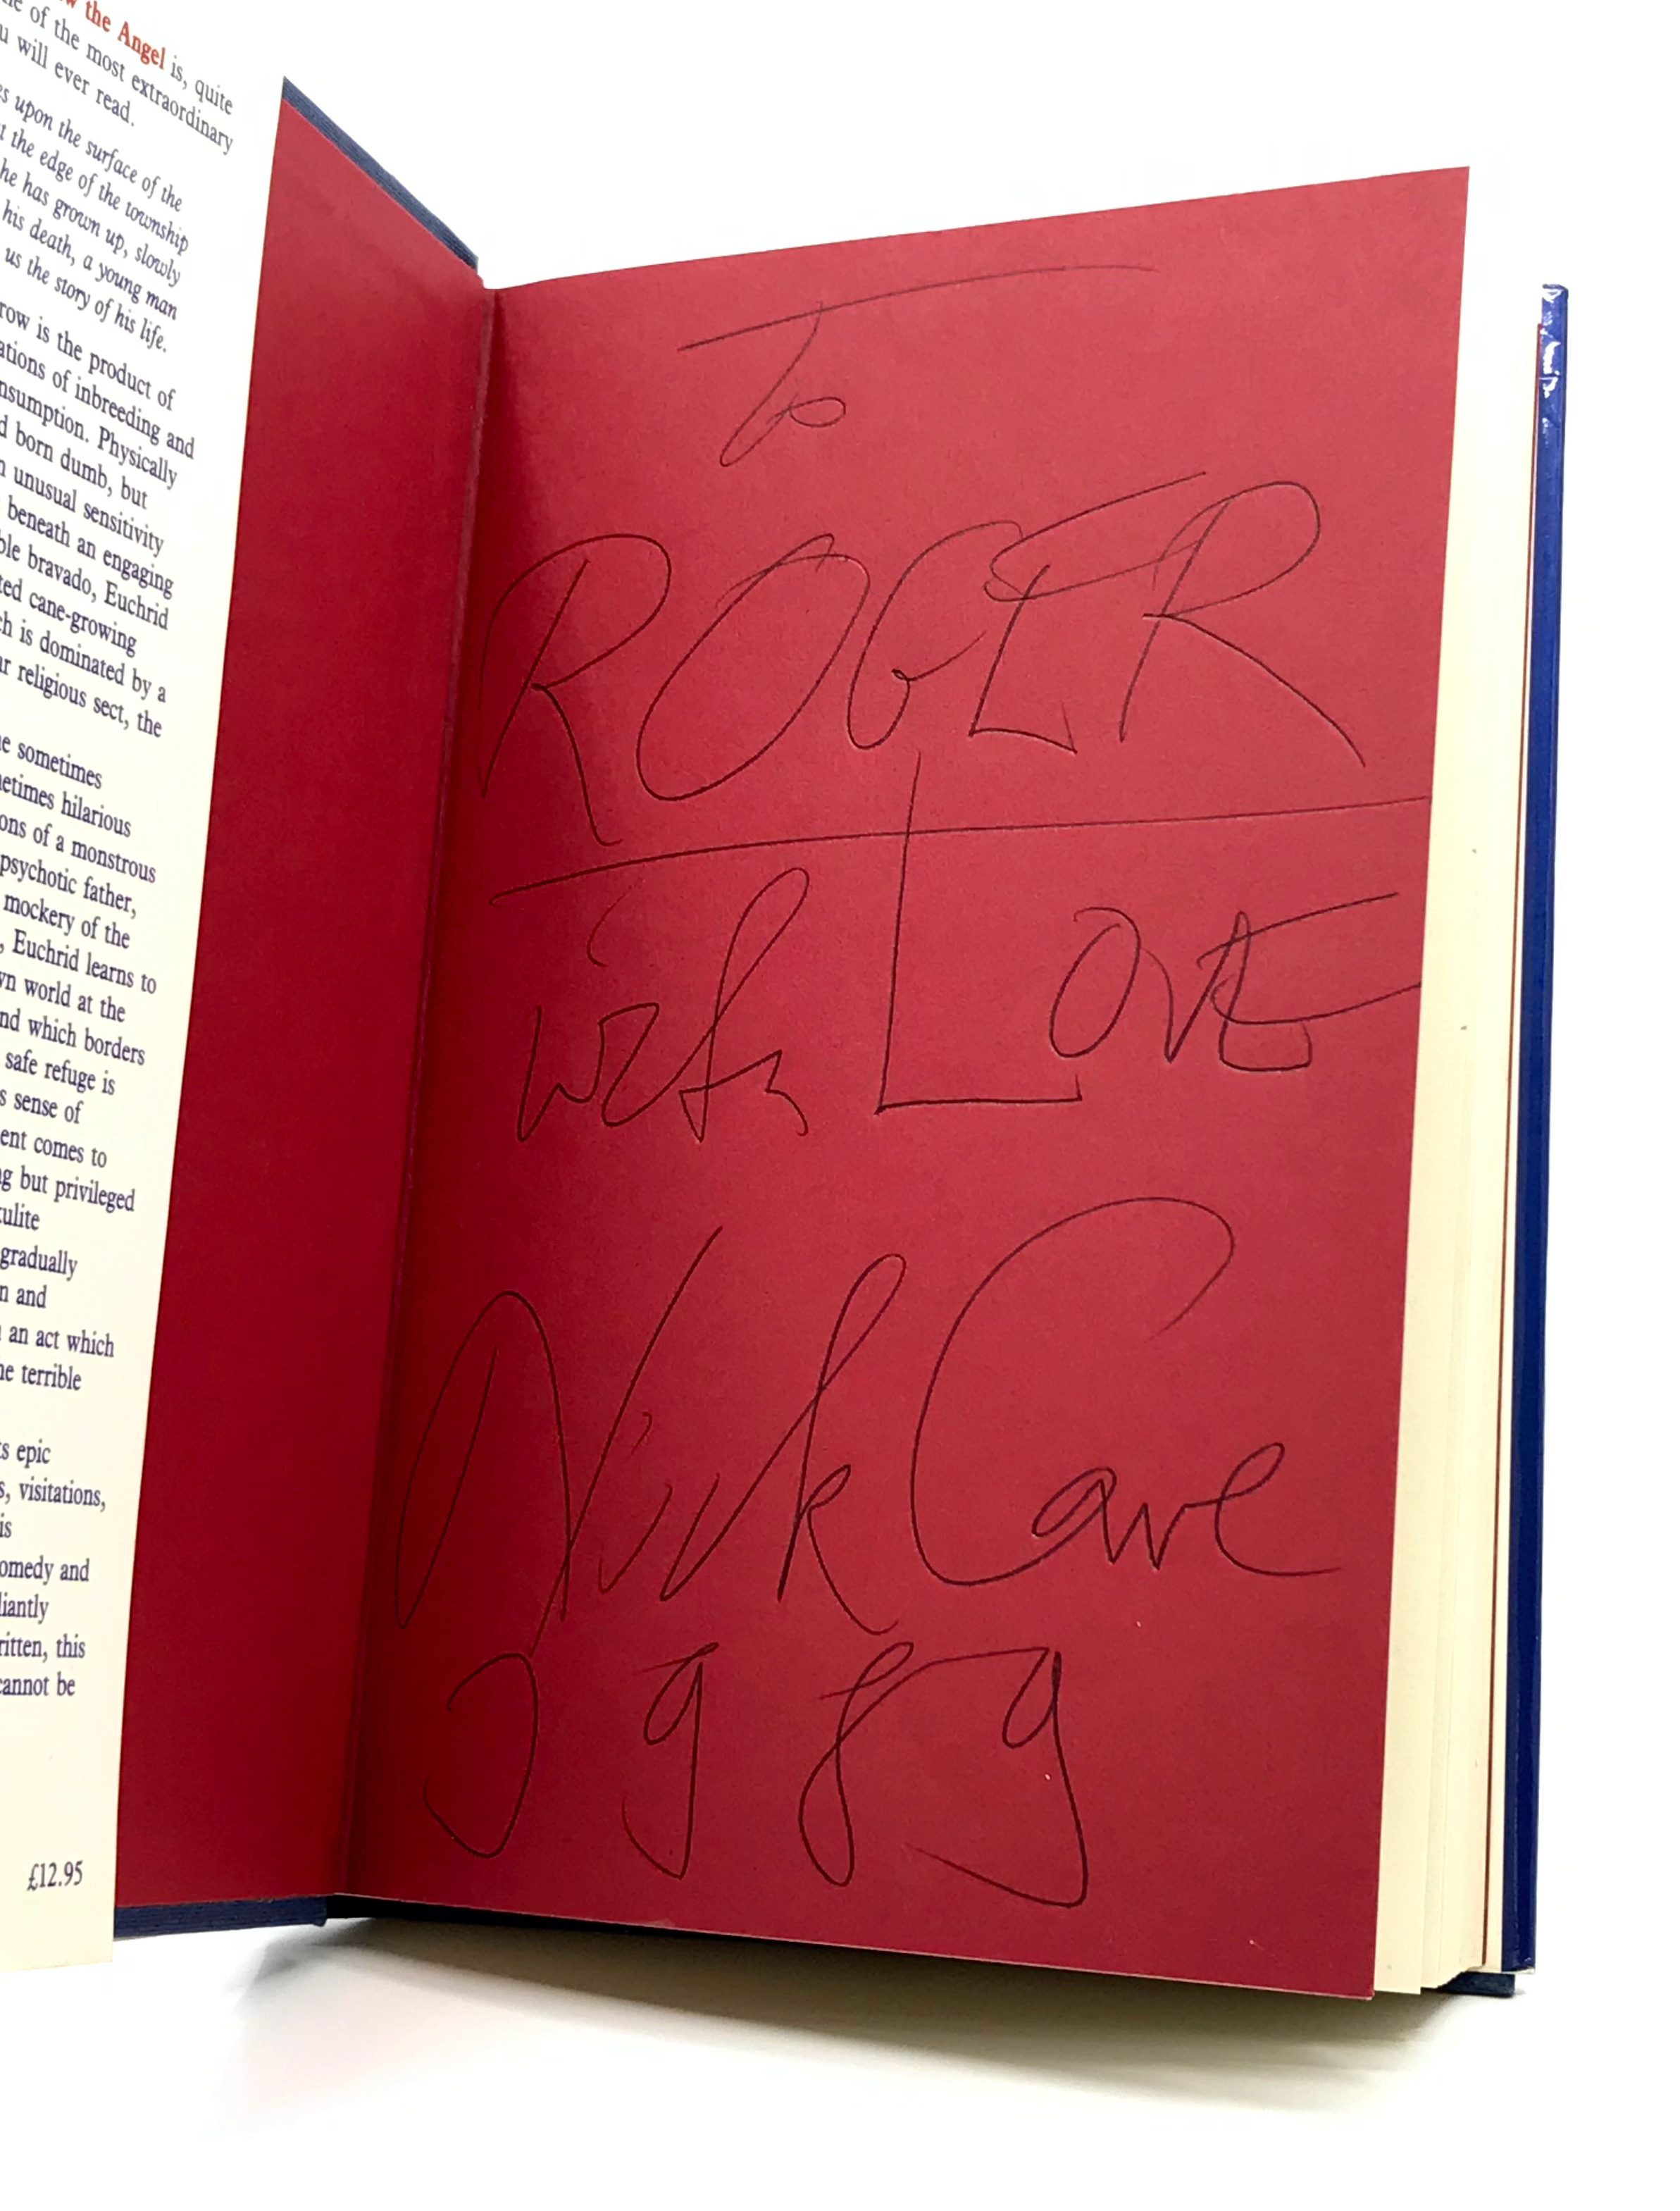 w the Angel is, quite
ne of the most extraordinary
u will ever read.
es upon the surface of the
t the edge of the township
he has grown up, slowly
his death, a young man
us the story of his life.
row is the product of
ations of inbreeding and
nsumption. Physically
d born dumb, but
n unusual sensitivity
beneath an engaging
ble bravado, Euchrid
ted cane-growing
ch is dominated by a
ar religious sect, the
e sometimes
netimes hilarious
ons of a monstrous
psychotic father,
mockery of the
, Euchrid learns to
wn world at the
nd which borders
safe refuge is
s sense of
ent comes to
ng but privileged
kulite
gradually
n and
an act which
he terrible
ts epic
s, visitations,
is
omedy and
liantly
ritten, this
cannot be
£12.95
To
ROGER
with LOVE
Nick Cave
1989